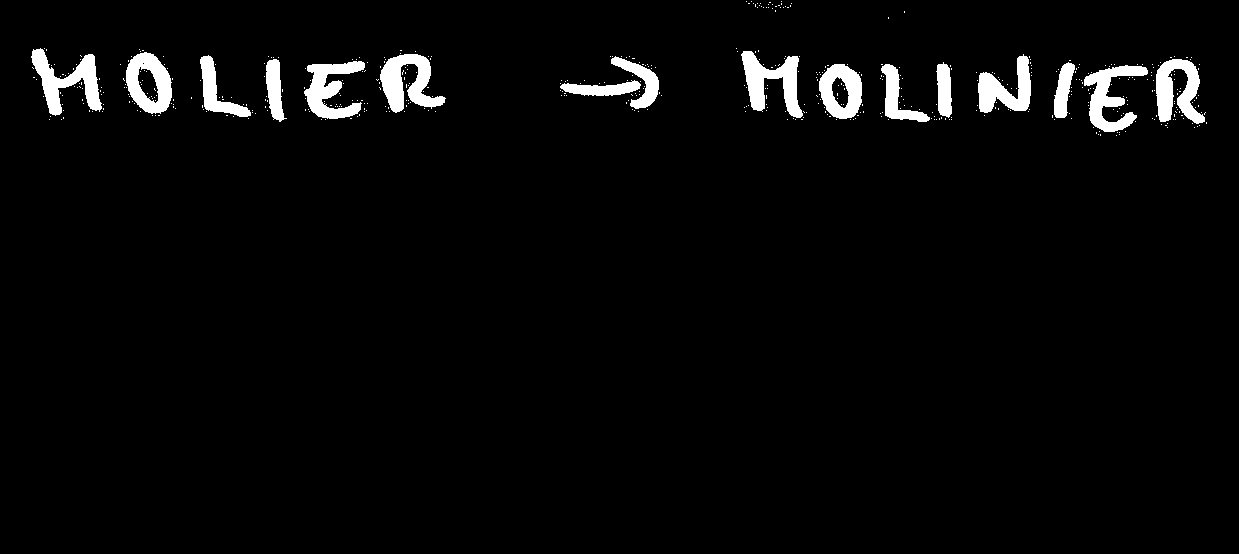 MOLIER → MOLINIER